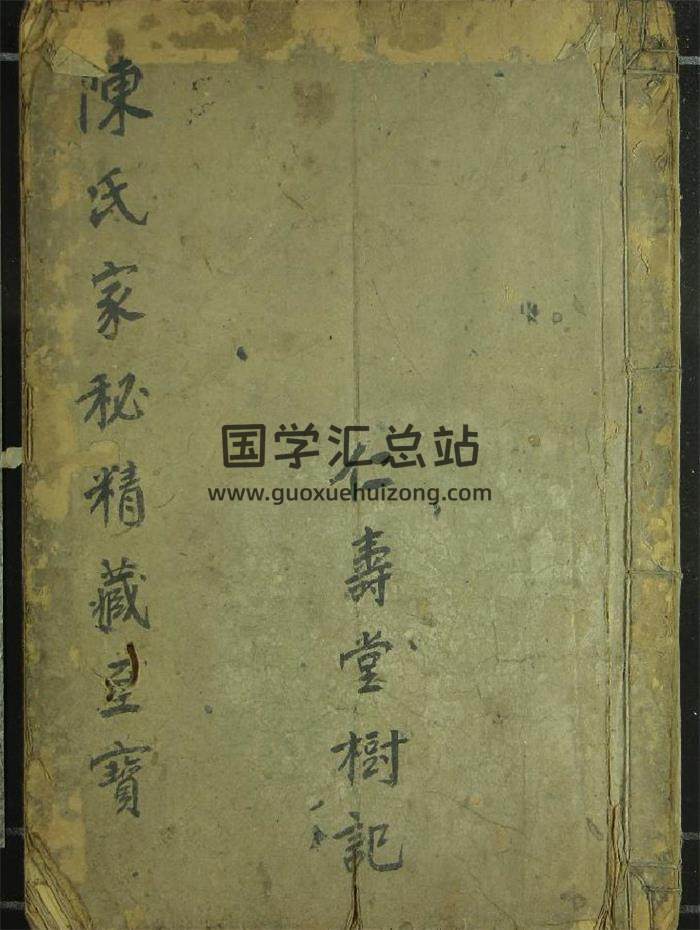 陳氏家秘精藏至寶
国学汇总站
www.guoxuehuizong.com
仁壽堂樹記